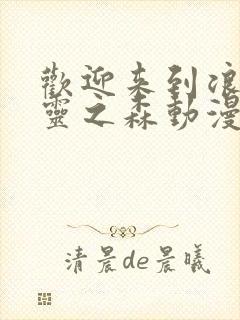 歡迎来到浪
靈之森動漫
清晨de晨曦